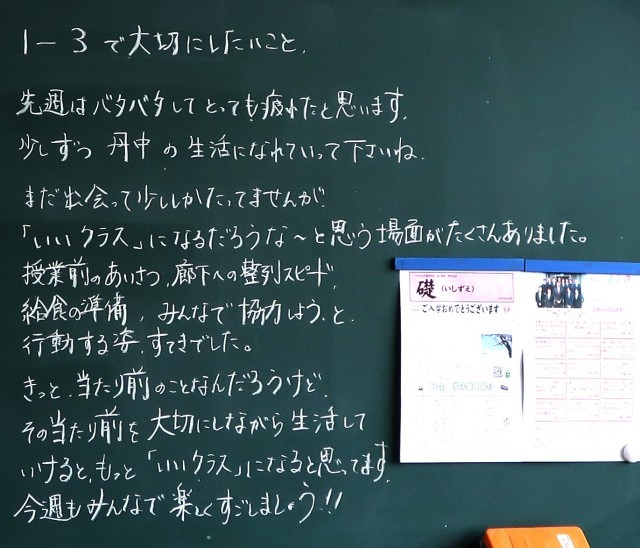 1-3で大切にしたいこと、
先週はバタバタしてとっても疲れたと思います。
少しずつ 丹中 の 生活になれていって下さいね。
まだ出会って少ししかたってませんが、
「いいクラス」になるだろうな～と思う場面がたくさんありました。
授業前のあいさつ、廊下への整列スピード、
給食の準備、みんなで協力しよう、と、
行動する姿、すてきでした。
きっと、当たり前のことなんだろうけど、
その当たり前を大切にしながら生活して
いけると、もっと「いいクラス」になると思ってます。
今週もみんなで楽しくすごしましょう!!
礎(いしずえ)
ご入学おめでとうございます